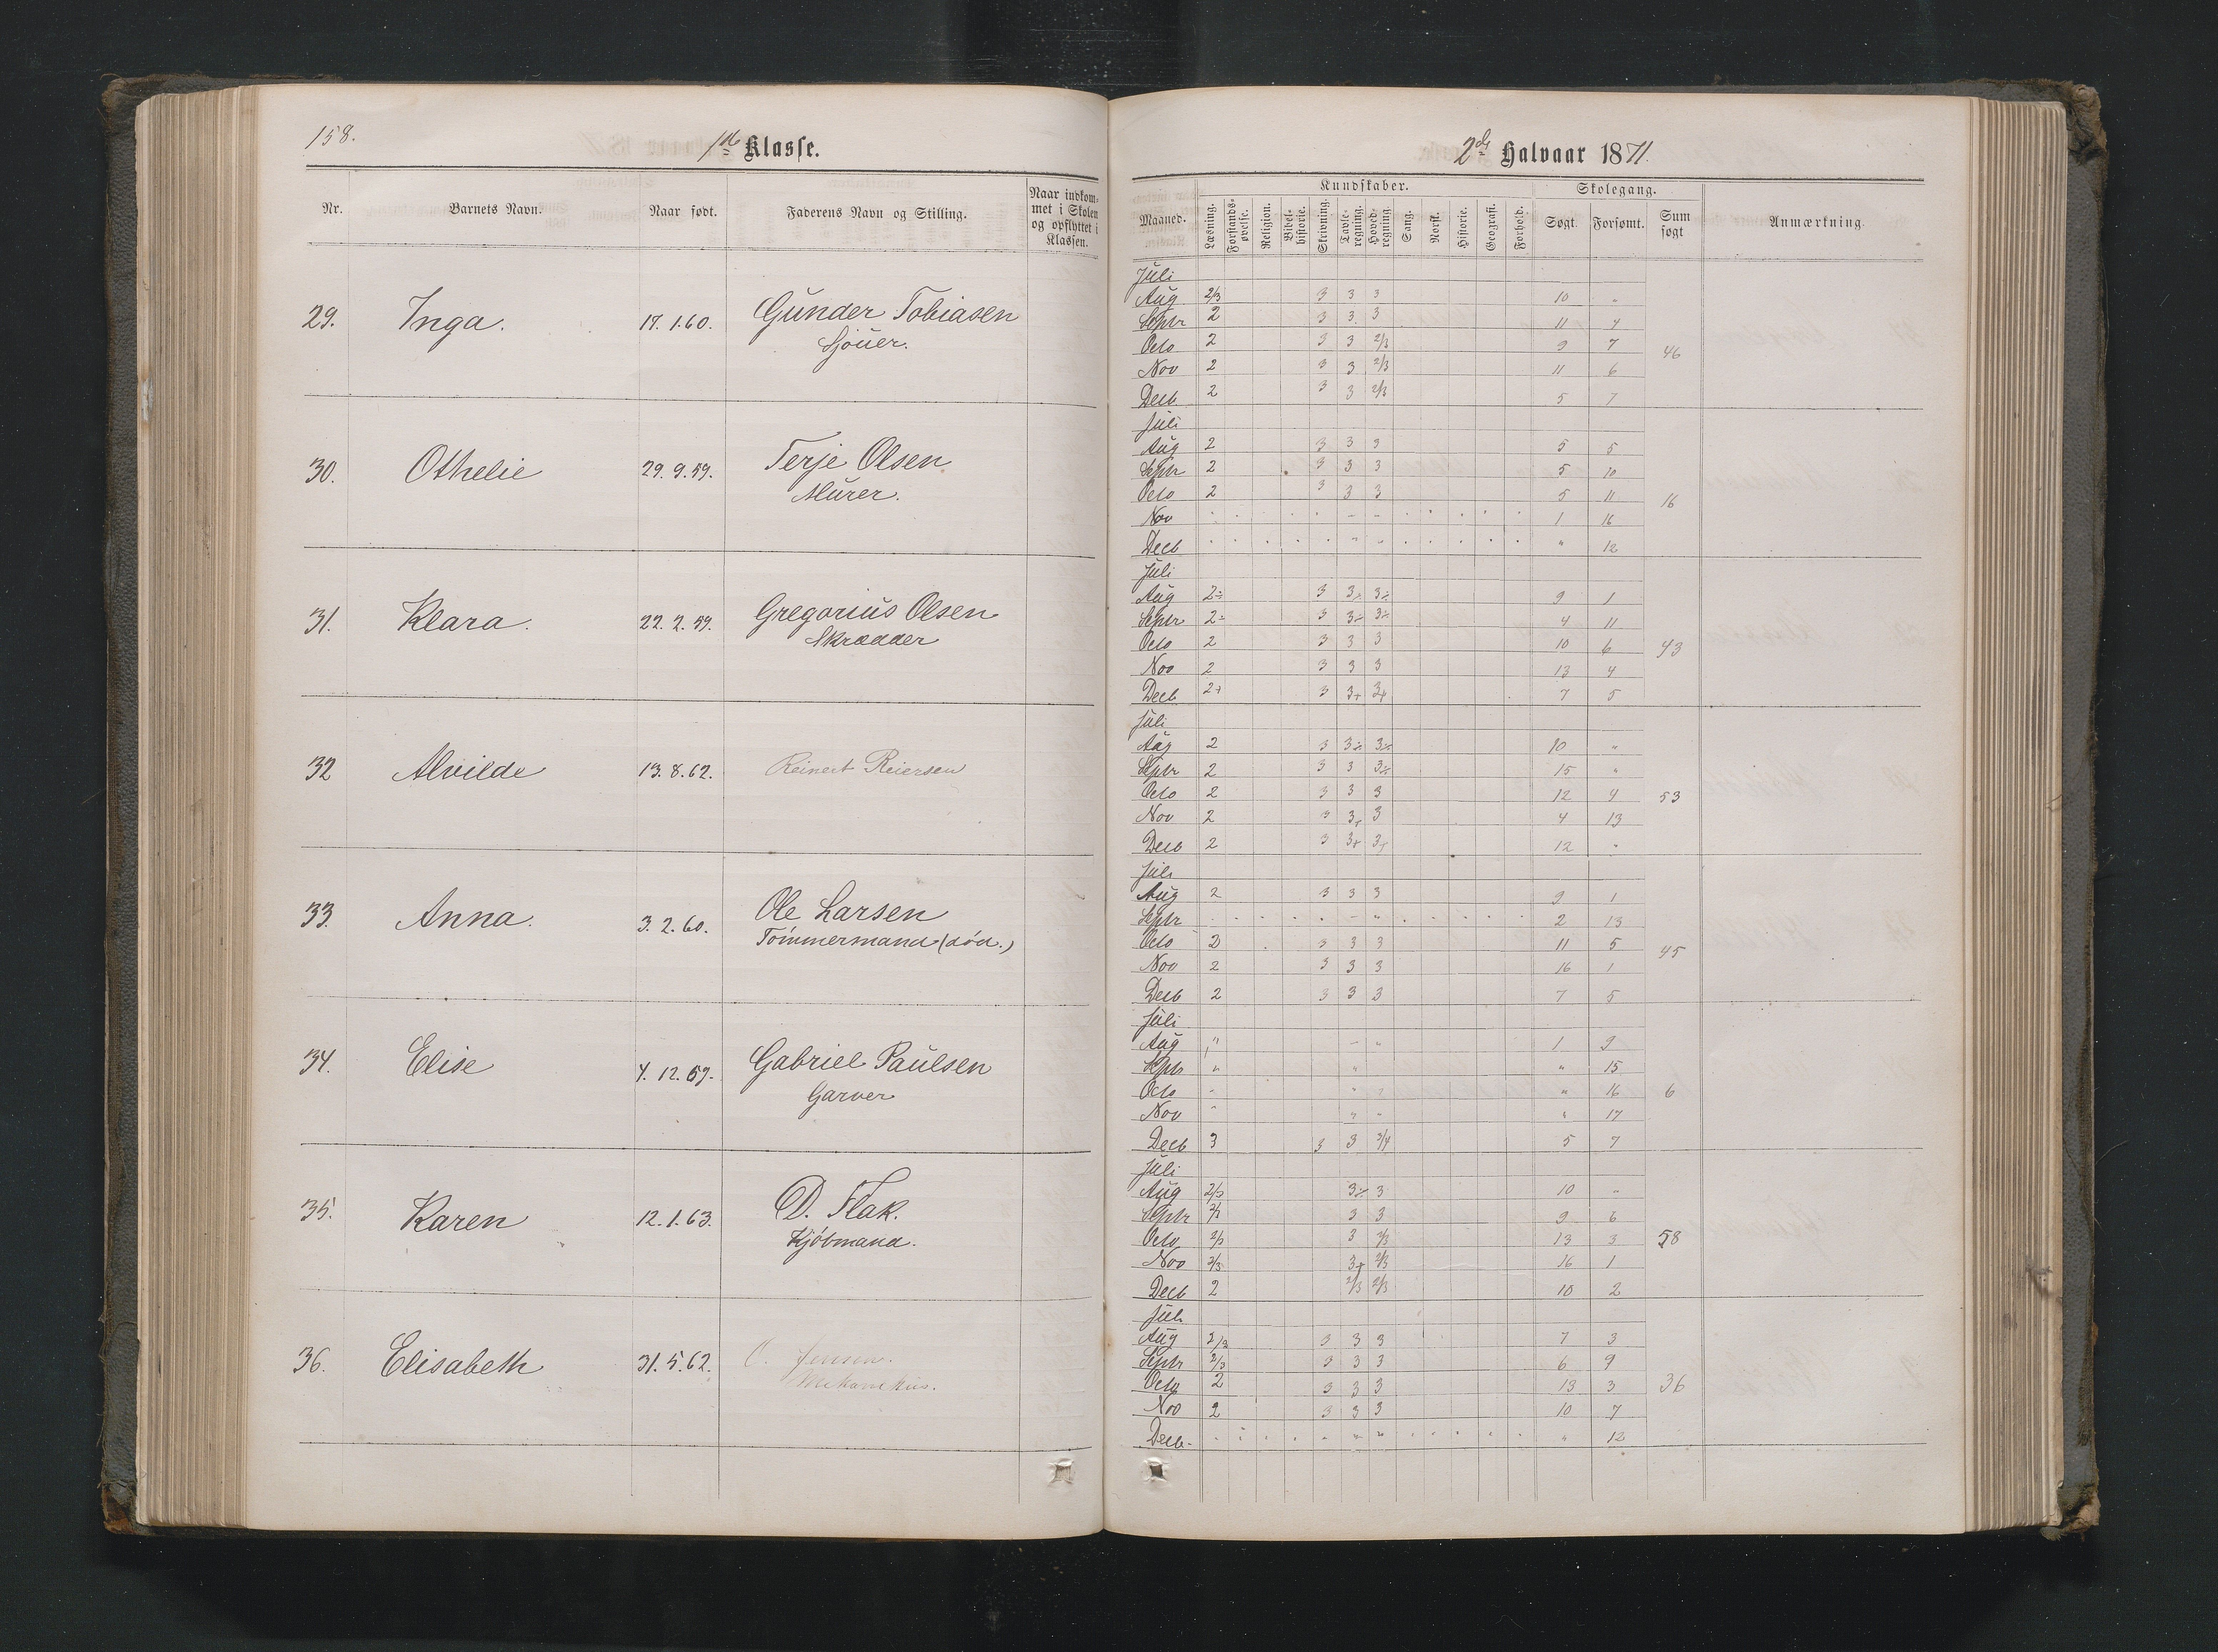 158.
1ste Klasse.
Nr. Barnets Navn. Naar født. Faderens Navn og Stilling. Naar indkom-met i Skolen og opflyttet i Klassen.
29. Inga. 17.1.60. Gunder Tobiasen
Sjöuer.
30. Othelie 29.9.59. Terje Olsen
Murer.
31. Klara. 22.2.59. Gregorius Olsen
Skrædder
32 Alvilde 13.8.62. Reinert Reiersen
33. Anna. 3.2.60. Ole Larsen
Tömmermand (död.)
34. Elise 4.12.59. Gabriel Paulsen
Garver
35. Karen 12.1.63. D. Flak.
Kjöbmand.
36. Elisabeth 31.5.62. O. Jensen.
Mekanikus.
2det Halvaar 1871.
Kundskaber. Skolegang.
Maaned. Læsning. Forstands-øvelse. Religion. Bibel-historie. Skrivning. Tavle-regning. Hoved-regning. Sang. Norsk. Historie. Geografi. Forhold. Søgt. Forsømt. Sum søgt Anmærkning.
Juli
Aug 2/3 3 3 3 10 "
Septr 2 3 3 3 11 4
Octo 2 3 3 2/3 9 7 46
Nov 2 3 3 2/3 11 6
Decb 2 3 3 2/3 5 7
Juli
Aug 2 3 3 3 5 5
Septr 2 3 3 3 5 10
Octo 2 3 3 3 5 11 16
Nov 1 16
Decb " 12
Juli
Aug 2÷ 3 3÷ 3÷ 9 1
Septr 2÷ 3 3÷ 3÷ 4 11
Octo 2 3 3 3 10 6 43
Nov 2 3 3 3 13 4
Decb 2+ 3 3+ 3+ 7 5
Juli
Aug 2 3 3÷ 3÷ 10 "
Septr 2 3 3 3÷ 15 "
Octo 2 3 3 3 12 4 53
Nov 2 3 3+ 3 4 13
Decb 2 3 3+ 3+ 12 "
Juli
Aug 2 3 3 3 9 1
Septr 2 13
Octo 2 3 3 3 11 5 45
Nov 2 3 3 3 16 1
Decb 2 3 3 3 7 5
Juli
Aug " " " 1 9
Septr " " " 15
Octo " " " " 16 6
Nov " " " " 17
Decb 3 3 3 3/4 5 7
Juli
Aug 2/3 3÷ 3 10 "
Septr 2/3 3 3 9 6
Octo 2/3 3 2/3 13 3 58
Nov 2/3 3+ 2/3 16 1
Decb 2 2/3 2/3 10 2
Juli
Aug 2/3 3 3 3 7 3
Septr 2/3 3 3 3 6 9
Octo 2 3 3 3 13 3 36
Nov 2 3 3 3 10 7
Decb. " 12